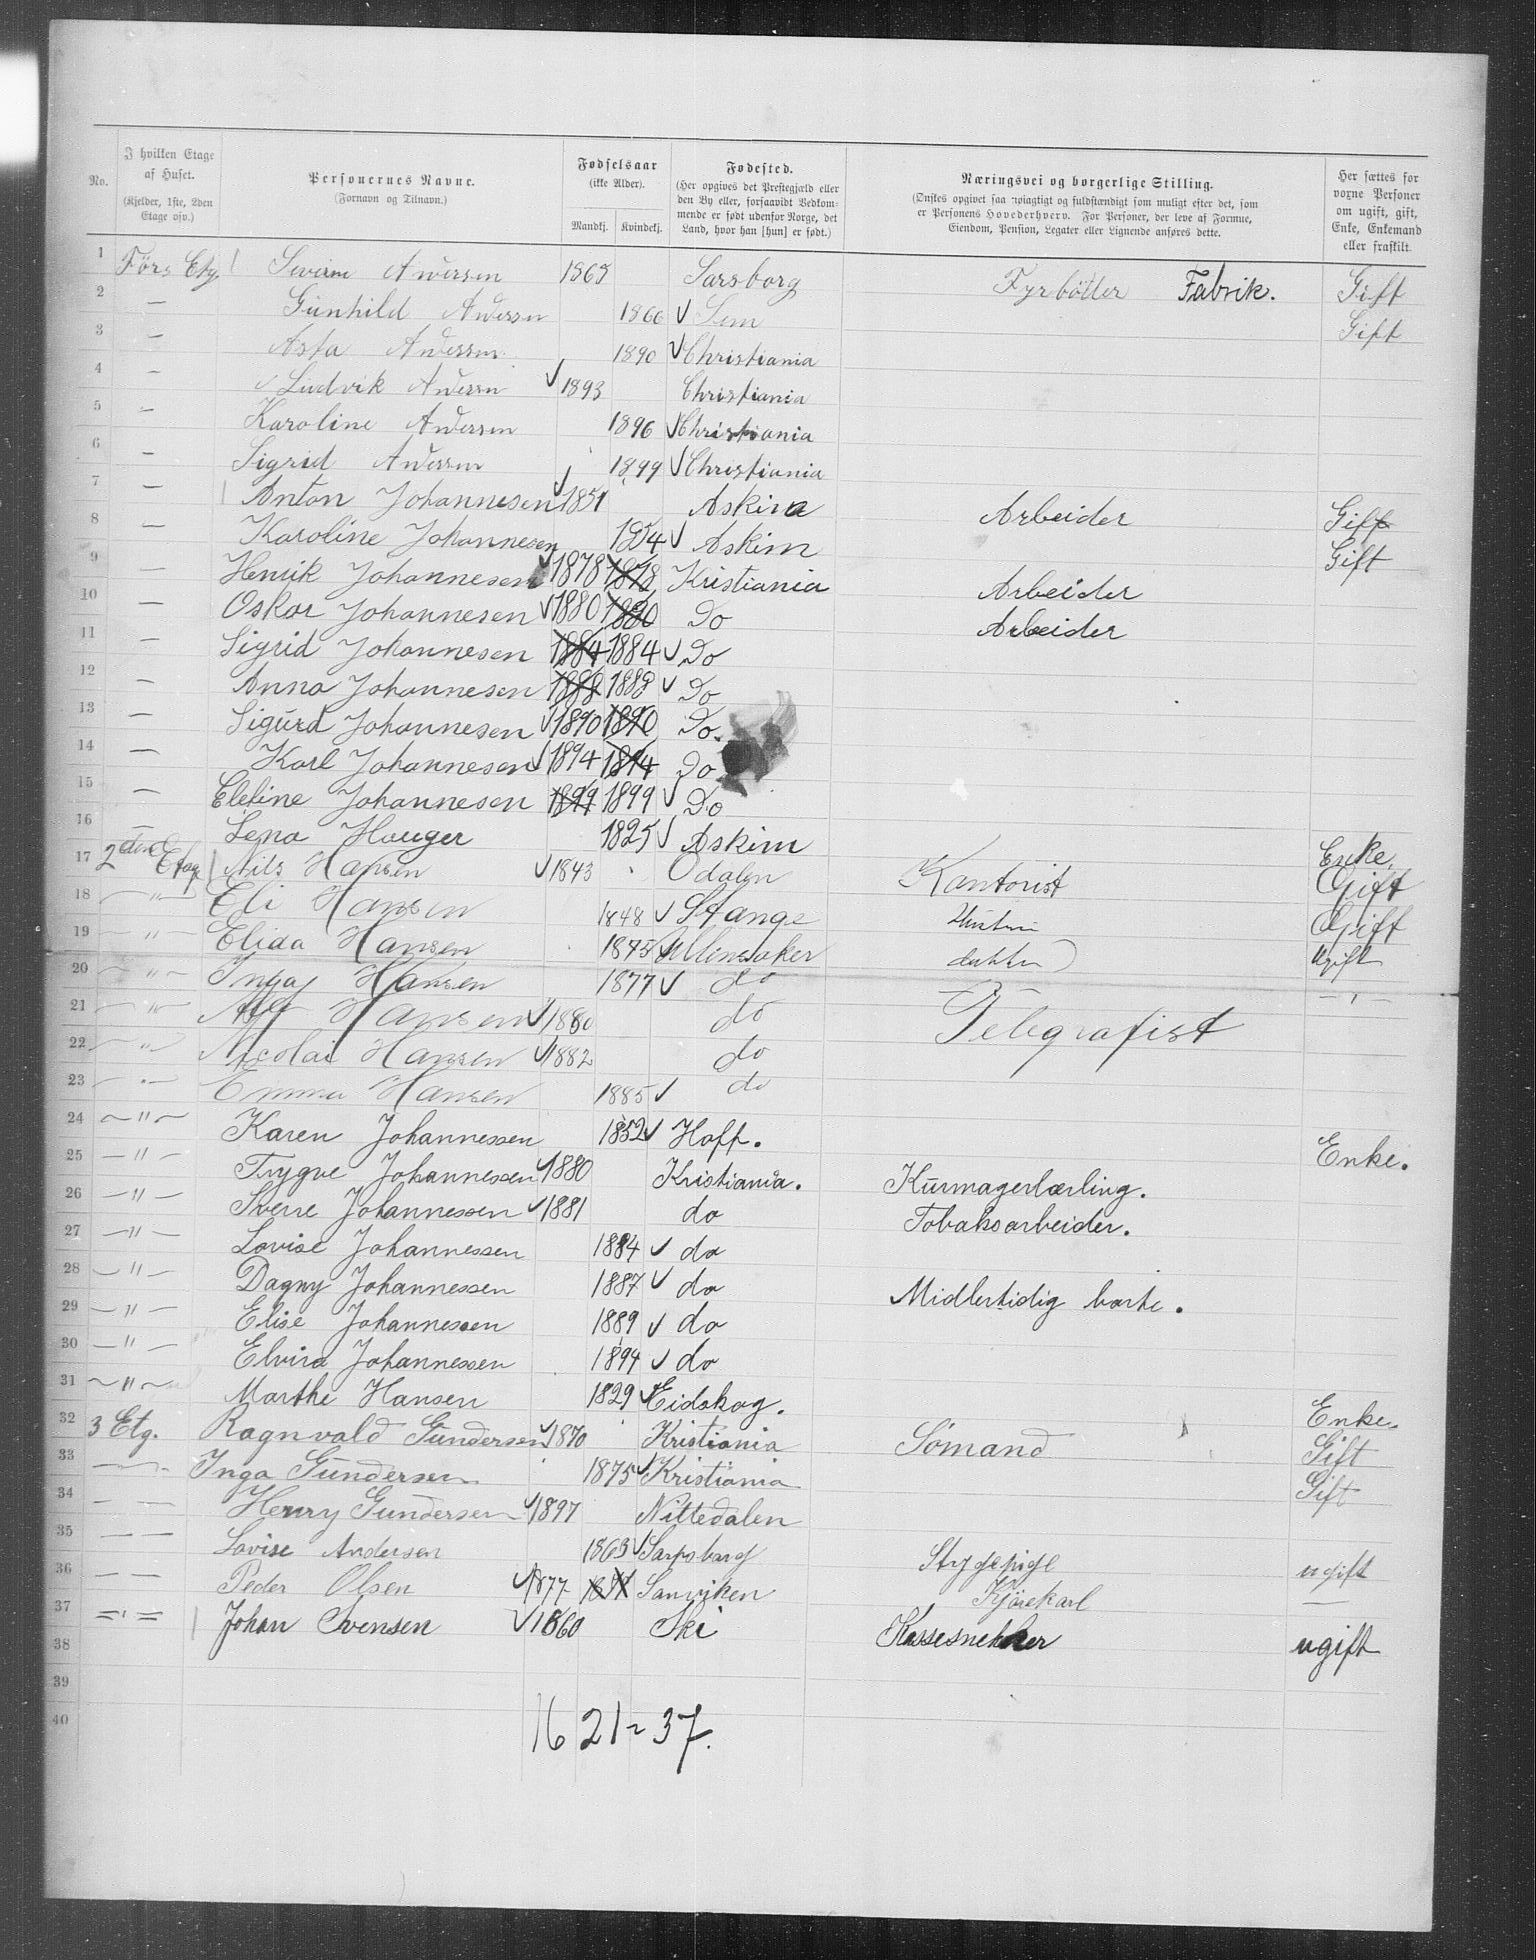 No.
I hvilken Etage af Huset.
(Kjelder, 1ste, 2den Etage osv.)
Personernes Navne.
(Fornavn og Tilnavn.)
Fødselsaar
(ikke Alder).
Mandkj. Kvindekj.
Fødested.
(Her opgives det Prestegjæld eller den By eller, forsaavidt Vedkommende er født udenfor Norge, det Land, hvor han [hun] er født.)
Næringsvei og borgerlige Stilling.
(Ønskes opgivet saa nøiagtigt og fuldstændigt som muligt efter det, som er Personens Hovederhverv. For Personer, der leve af Formue, Eiendom, Pension, Legater eller Lignende anføres dette.
Her sættes for voxne Personer om ugift, gift, Enke, Enkemand eller fraskilt.
1 Förs Etg. Severin Andersen 1865 Sarsborg Fyrbötter Fabrik. Gift
2 — Gunhild Andersen 1866 Sem Gift
3 — Asta Andersen 1890 Christiania
4 — Ludvik Andersen 1893 Christiania
5 — Karoline Andersen 1896 Christiania
6 — Sigrid Andersen 1899 Christiania
7 — Anton Johannesen 1851 Askim Arbeider Gift
8 — Karoline Johannesen 1854 Askim Gift
9 — Henrik Johannesen 1878 1878 Kristiania Arbeider
10 — Oskar Johannesen 1880 1880 Do Arbeider
11 — Sigrid Johannesen 1884 1884 Do
12 — Anna Johannesen 1888 1888 Do
13 — Sigurd Johannesen 1890 1890 Do.
14 — Karl Johannesen 1894 1894 Do
15 — Elefine Johannesen 1899 1899 Do
16 — Lena Hauger 1825 Askim Enke.
17 2den Etag Nils Hansen 1843 Odalen Kantorist Gift
18 — " — Eli Hansen 1848 Stange Hustru Gift
19 — " — Elida Hansen 1875 Ullensaker datter Ugift
20 — " — Inga Hansen 1877 do — " — — " —
21 — " — Alf Hansen 1880 do Telegrafist
22 — " — Nicolai Hansen 1882 do
23 — " — Emma Hansen 1885 do
24 — " — Karen Johannessen 1852 Hoff. Enke.
25 — " — Trygve Johannessen 1880 Kristiania. Kurmagerlærling.
26 — " — Sverre Johannessen 1881 do Tobaksarbeider.
27 — " — Lovise Johannessen 1884 do
28 — " — Dagny Johannessen 1887 do Midlertidig borte.
29 — " — Elise Johannessen 1889 do
30 — " — Elvira Johannessen 1894 do
31 — " — Marthe Hansen 1829 Eidskog. Enke.
32 3 Etg. Ragnvald Gundersen 1870 Kristiania Sömand Gift
33 — Inga Gundersen 1875 Kristiania Gift
34 — — Henry Gundersen 1897 Nittedalen
35 — — Lovise Andersen 1863 Sarpsborg Strygepige ugift
36 — — Peder Olsen 1877 1877 Sanviken Kjørekarl —
37 = " = Johan Svensen 1860 Ski Kassesnekker ugift
38
39
40
16 21 = 37.